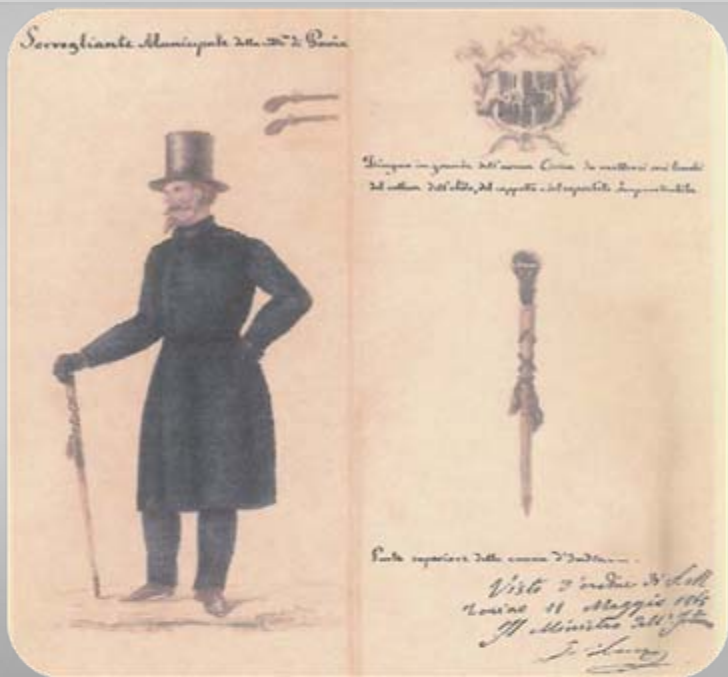 Sorvegliante Municipale della città di Pavia
Disegno in grande dell'arma Civica da mettersi sui
del dell'abito, del cappello e del
Parte superiore della canna d'India
Visto d'ordine di S. M.
Torino 11 Maggio
Il Ministro dell'